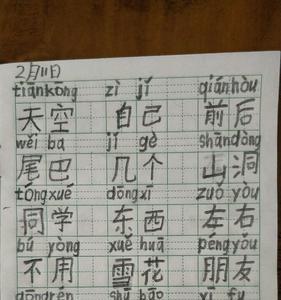 2月11日
tiānkōng zì jǐ qiánhòu
天空 自己 前后
wěi ba jǐ gè shāndòng
尾巴 几个 山洞
tóngxué dōngxī zuǒ yòu
同学 东西 左右
bú yòng xuě huā péngyǒu
不用 雪花 朋友